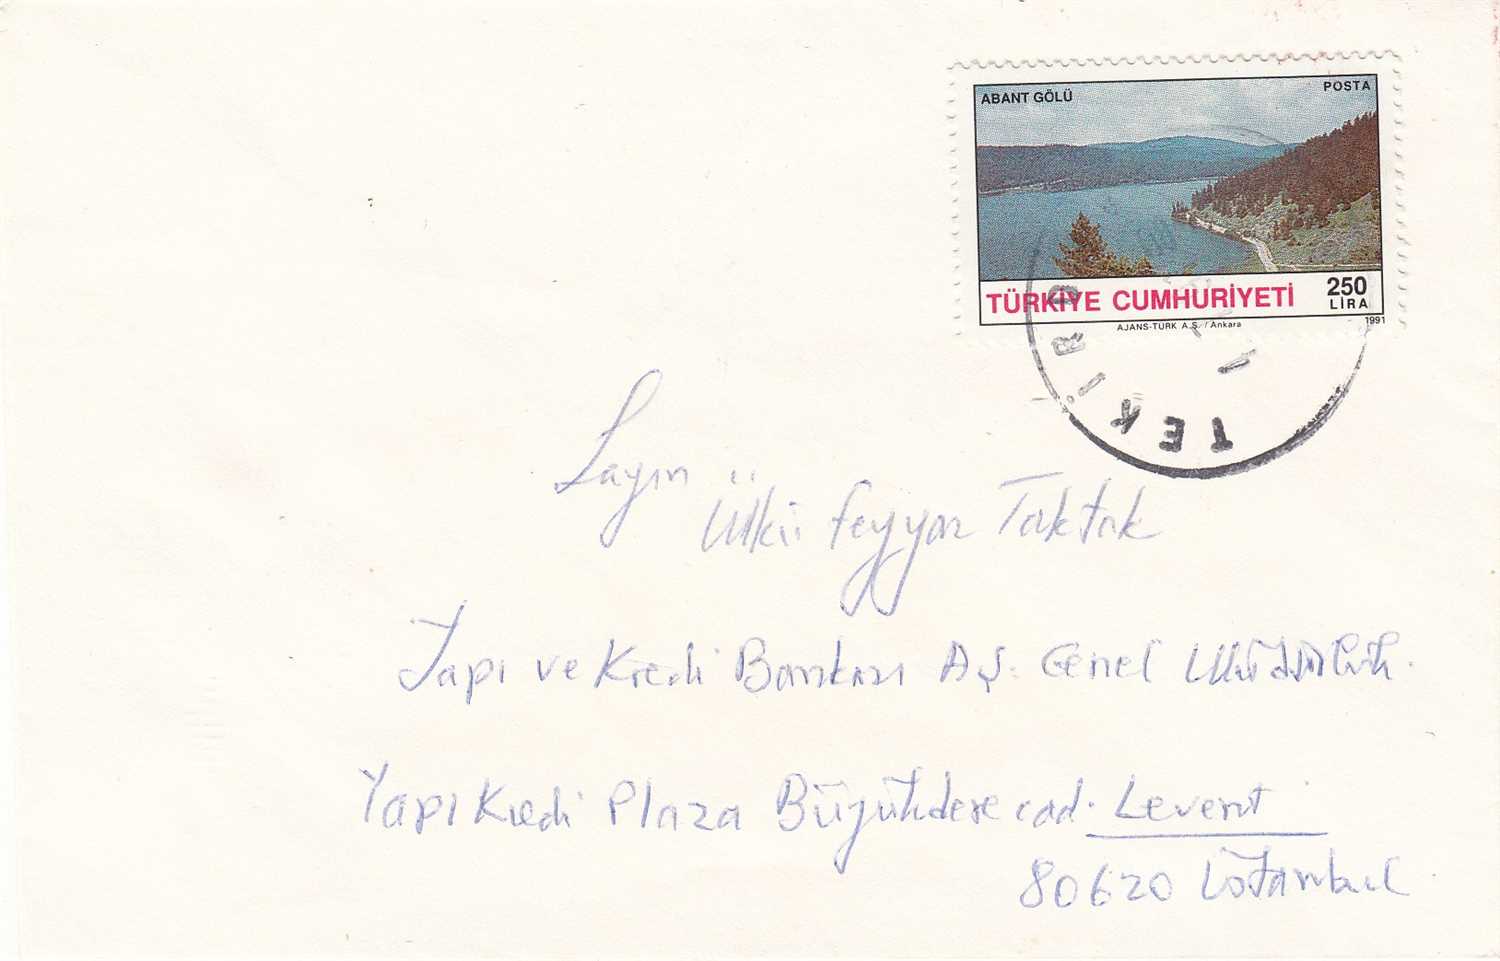 ABANT GÖLÜ
POSTA
TÜRKİYE CUMHURİYETİ
250
LİRA
AJANS-TÜRK A.Ş. / Ankara
1991
TEKİRD
Sayın
Ülkü Feyyaz Taktak
Yapı ve Kredi Bankası A.Ş. Genel Müdürlük.
Yapı Kredi Plaza Büyükdere cad. Levent
80620 İstanbul